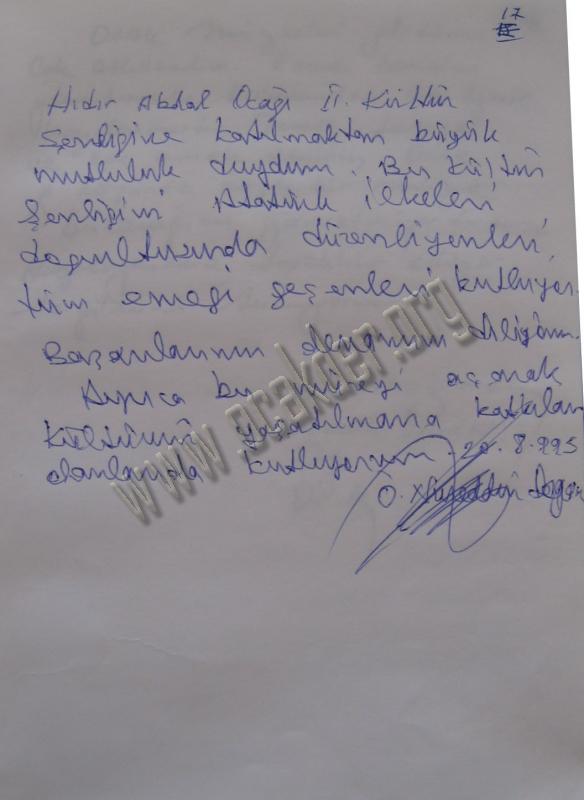 17
Hıdır Abdal Ocağı II. Kültür
Şenliğine katılmaktan büyük
mutluluk duydum. Bu kültür
Şenliğini Atatürk ilkeleri
doğrultusunda düzenliyenleri,
tüm emeği geçenleri kutluyor.
Başarılarının devamını diliyorum.
Ayrıca bu müzeyi açmak
kültürünü yaşatılmasına katkıları
olanlarıda kutluyorum. 20.8.995
Ö.
www.ocakder.org